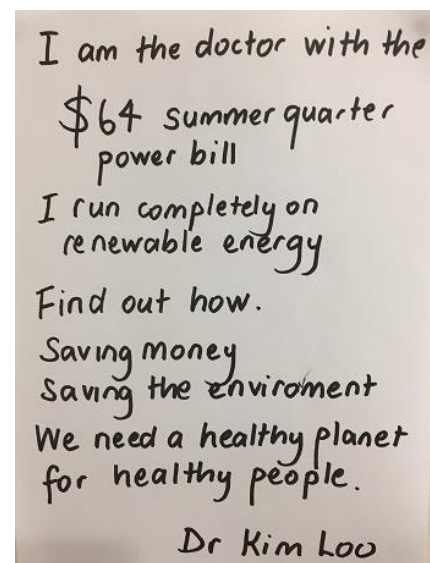 I am the doctor with the
$64 summer quarter
power bill
I run completely on
renewable energy
Find out how.
Saving money
Saving the enviroment
We need a healthy planet
for healthy people.
Dr Kim Loo